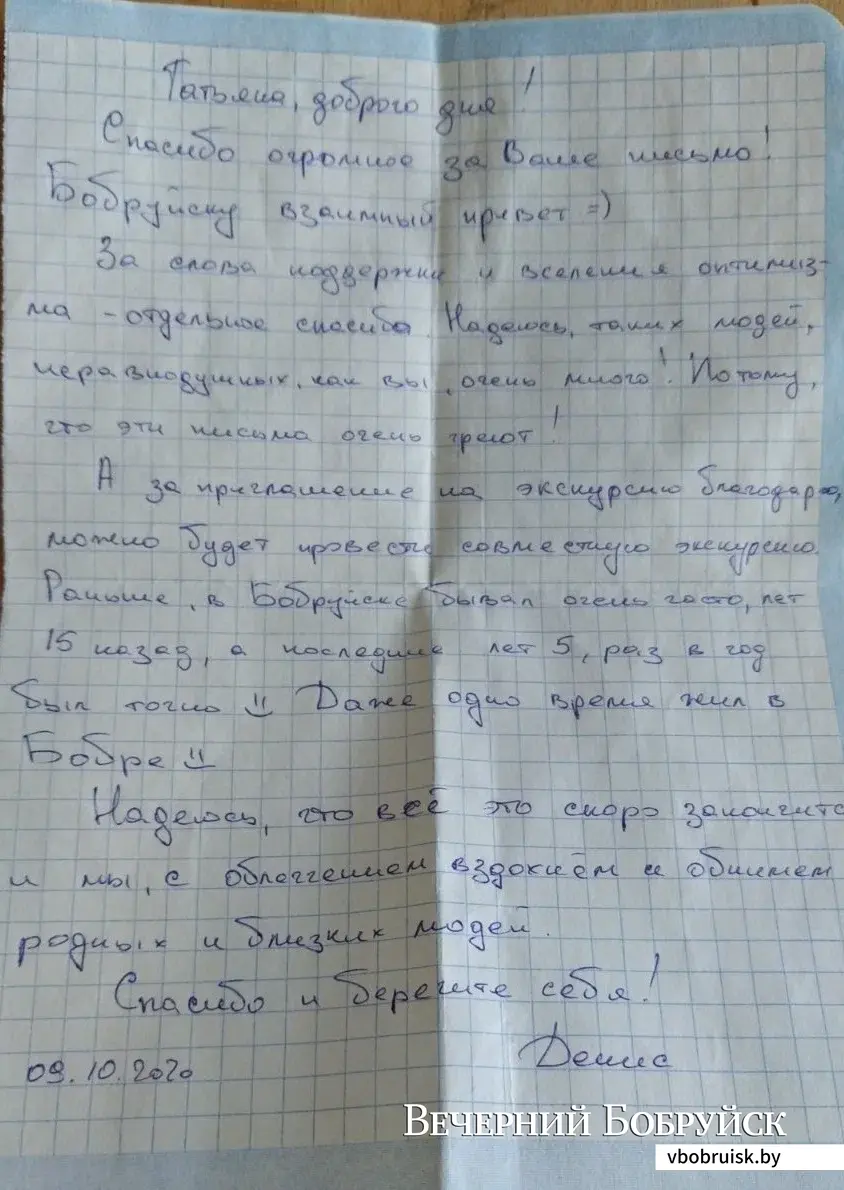 Татьяна, доброго дня!
Спасибо огромное за Ваше письмо!
Бобруйску взаимный привет =)
За слова поддержки и вселения оптимиз-
ма - отдельное спасибо. Надеюсь, таких людей,
неравнодушных, как вы, очень много! Потому,
что эти письма очень греют!
А за приглашение на экскурсию благодарю,
можно будет провести совместную экскурсию.
Раньше, в Бобруйске бывал очень часто, лет
15 назад, а последние лет 5, раз в год
был точно :) Даже одно время жил в
Бобре :)
Надеюсь, что всё это скоро закончится
и мы, с облегчением вздохнём и обнимем
родных и близких людей.
Спасибо и берегите себя!
Денис
09.10.2020
ВЕЧЕРНИЙ БОБРУЙСК
vbobruisk.by